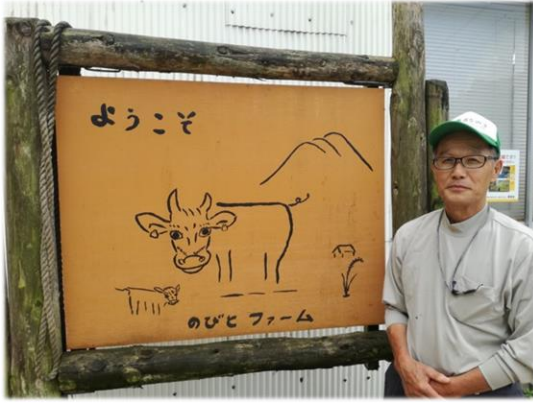 ようこそ
のびとファーム